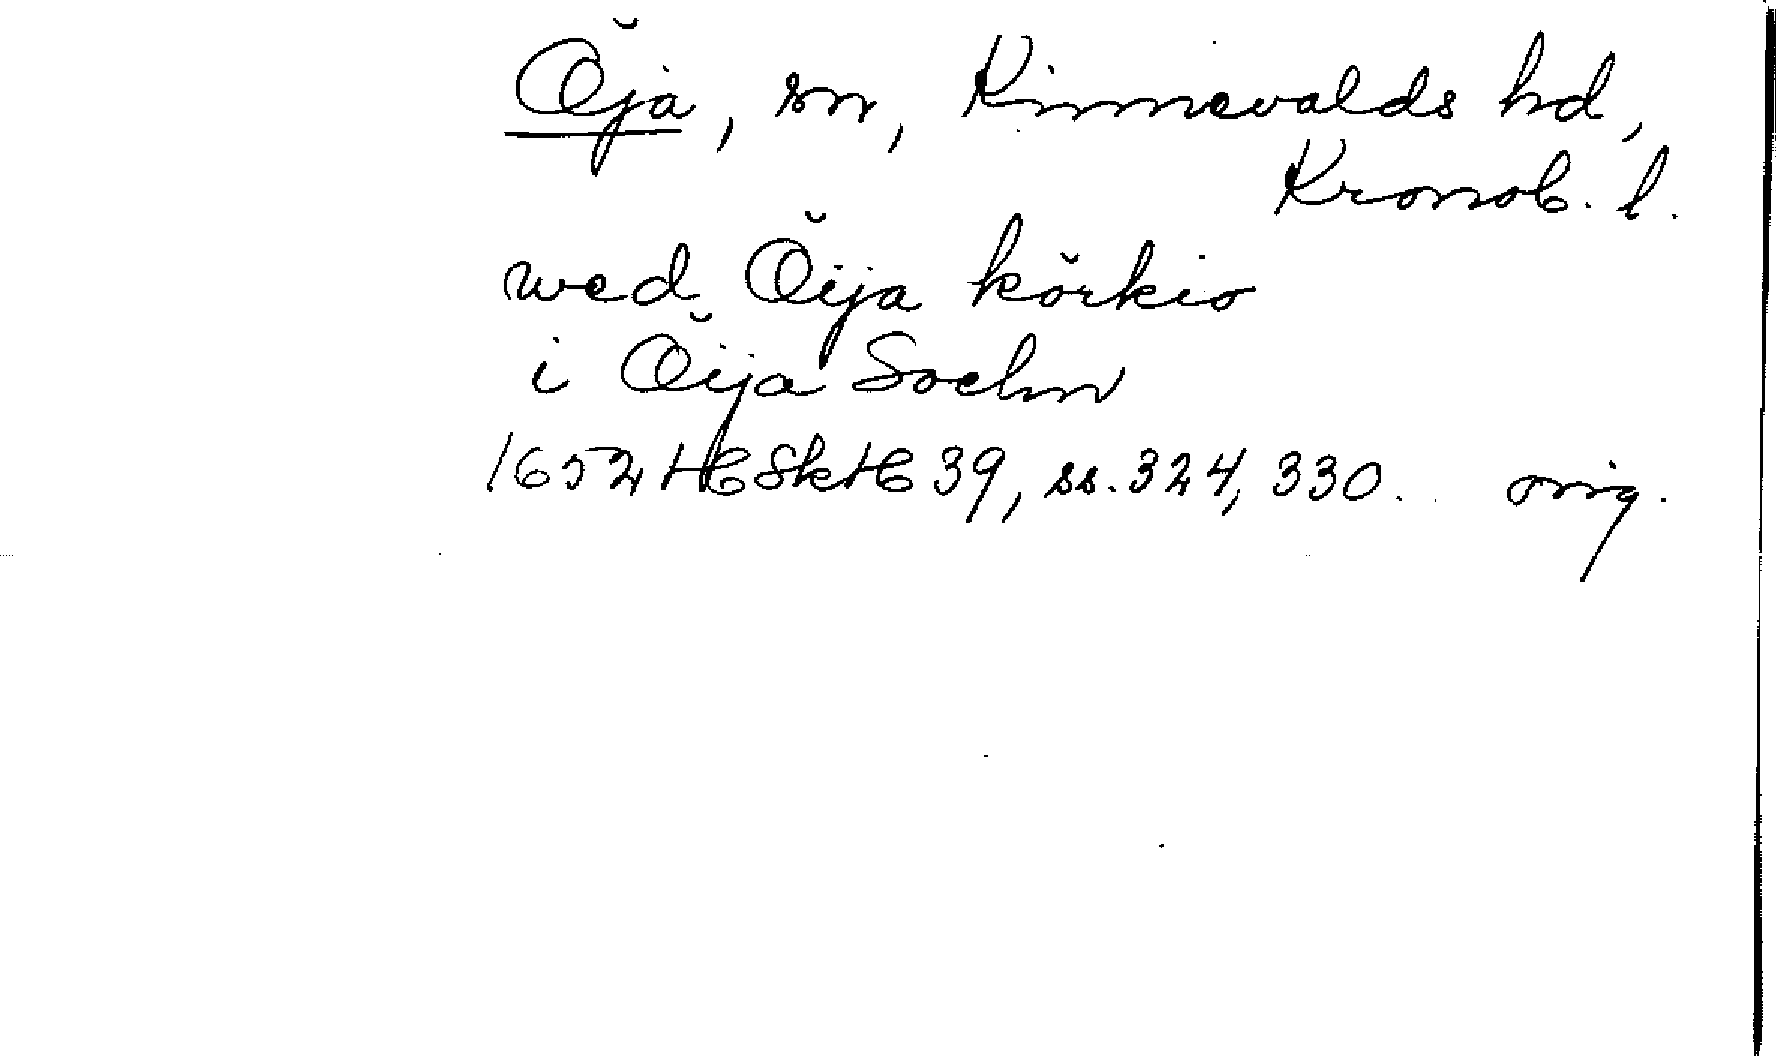 Öja, sn, Kinnevalds hd,
Kronob. l.
wed Öija körkio
i Öija Sochn
1652 HC Sk HC 39, ss. 324, 330. orig.